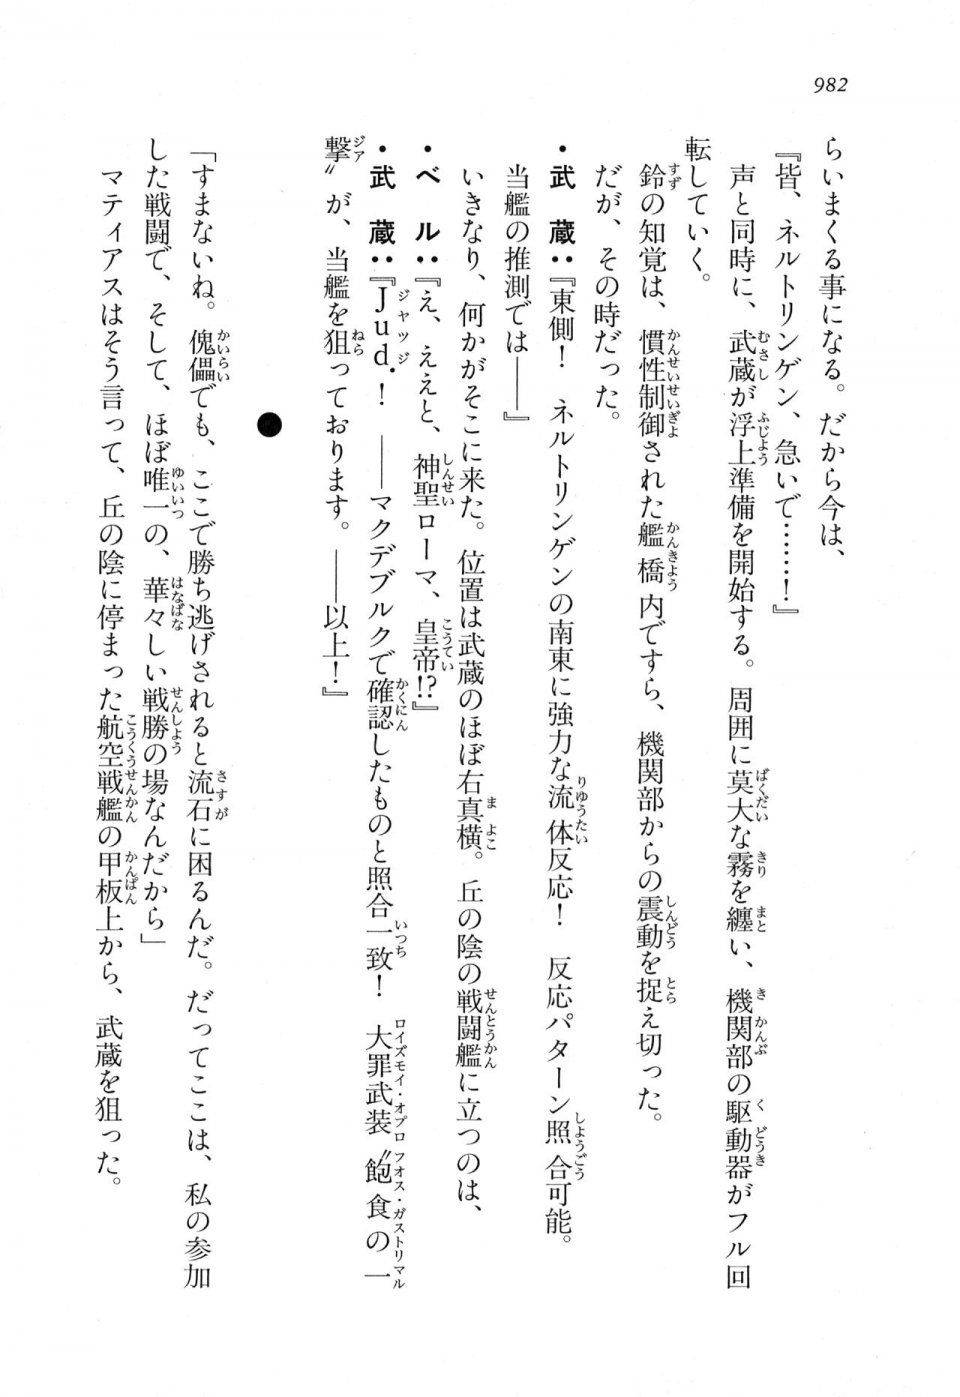 982
らいまくる事になる。だから今は、
『皆、ネルトリンゲン、急いで……！』
声と同時に、武蔵が浮上準備を開始する。周囲に莫大な霧を纏い、機関部の駆動器がフル回
転していく。
鈴の知覚は、慣性制御された艦橋内ですら、機関部からの震動を捉え切った。
だが、その時だった。
・武　蔵：『東側！　ネルトリンゲンの南東に強力な流体反応！　反応パターン照合可能。
当艦の推測では――』
いきなり、何かがそこに来た。位置は武蔵のほぼ右真横。丘の陰の戦闘艦に立つのは、
・ベ　ル：『え、ええと、神聖ローマ、皇帝!?』
・武　蔵：『Jud．！　――マクデブルクで確認したものと照合一致！　大罪武装〝飽食の一
撃〟が、当艦を狙っております。――以上！』
●
「すまないね。傀儡でも、ここで勝ち逃げされると流石に困るんだ。だってここは、私の参加
した戦闘で、そして、ほぼ唯一の、華々しい戦勝の場なんだから」
マティアスはそう言って、丘の陰に停まった航空戦艦の甲板上から、武蔵を狙った。